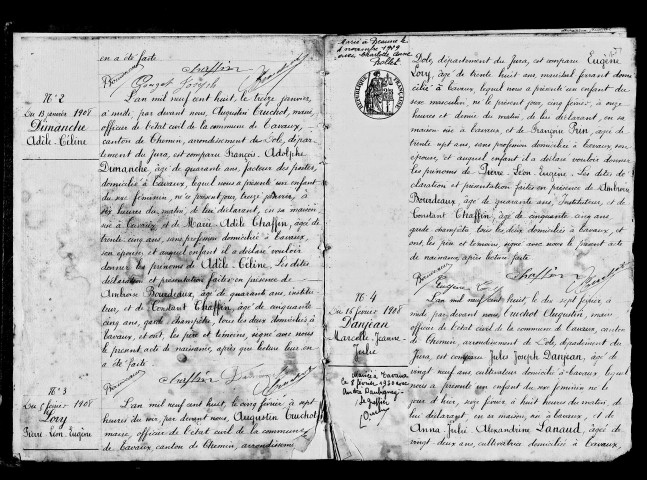 en a été faite.
Chaffin
N° 2
Du 13 janvier 1908
Dimanche
Adèle-Céline
L'an mil neuf cent huit, le treize janvier,
à midi, par devant nous, Augustin Cruchot, maire,
officier de l'état civil de la commune de Tavaux,
canton de Chemin, arrondissement de Dole, dépar-
tement du Jura, est comparu François Adolphe
Dimanche, âgé de quarante ans, facteur des postes,
domicilié à Tavaux, lequel nous a présenté un enfant
du sexe féminin, né ce présent jour, treize janvier, à
heures du matin, de lui déclarant, en sa maison
sise à Tavaux et de Marie Adèle Chaffin, âgée de
trente cinq ans, sans profession domiciliée à Tavaux,
son épouse et auquel enfant il a déclaré vouloir
donner les prénoms de Adèle-Céline. Les dites
déclaration et présentation faites en présence de
Ambroise Bourdeaux, âgé de quarante ans, institu-
teur, et de Constant Chaffin, âgé de cinquante
cinq ans, garde champêtre, tous les deux domiciliés à
Tavaux, et ont, les père et témoins, signé avec nous
le présent acte de naissance, après que lecture leur en
a été faite.
Chaffin
N° 3
Du 5 février 1908
Lory
Pierre Léon Eugène
L'an mil neuf cent huit, le cinq février, à sept
heures du soir, par devant nous, Augustin Cruchot
maire, officier de l'état civil de la commune
de Tavaux, canton de Chemin, arrondissement
Marié à Beaune le
novembre 1929
avec Charlotte
RÉPUBLIQUE FRANÇAISE
Dole, département du Jura, est comparu Eugène
Lory, âgé de trente huit ans, domi-
cilié à Tavaux, lequel nous a présenté un enfant du
sexe masculin, né le présent jour, cinq février, à onze
heures et demie du matin, de lui déclarant, en sa
maison sise à Tavaux, et de Françoise âgée de
trente sept ans, sans profession domiciliée à Tavaux, son
épouse, et auquel enfant il a déclaré vouloir donner
les prénoms de Pierre Léon Eugène. Les dites dé-
claration et présentation faites en présence de Ambroise
Bourdeaux, âgé de quarante ans, instituteur, et de
Constant Chaffin, âgé de cinquante cinq ans,
garde champêtre tous les deux domiciliés à Tavaux, et
ont, les père et témoins, signé avec nous le présent acte
de naissance, après lecture faite.
Chaffin
N° 4
Du 15 février 1908
Danjean
Marcelle Jeanne
Julie
Mariée à Tavaux
le 8 février 1930 avec
L'an mil neuf cent huit, le dix sept février, à
midi par devant nous, Cruchot Augustin, maire
officier de l'état civil de la commune de Tavaux, canton
de Chemin, arrondissement de Dole, département du
Jura, est comparu Jules Joseph Danjean, âgé de
vingt neuf ans, cultivateur domicilié à Tavaux, lequel
nous a présenté un enfant du sexe féminin né le
jour d'hier, seize février, à huit heures du matin, de
lui déclarant, en sa maison, sise à Tavaux, et de
Anna-Julie-Alexandrine Lanaud, âgée de
vingt-deux ans, cultivatrice domiciliée à Tavaux,